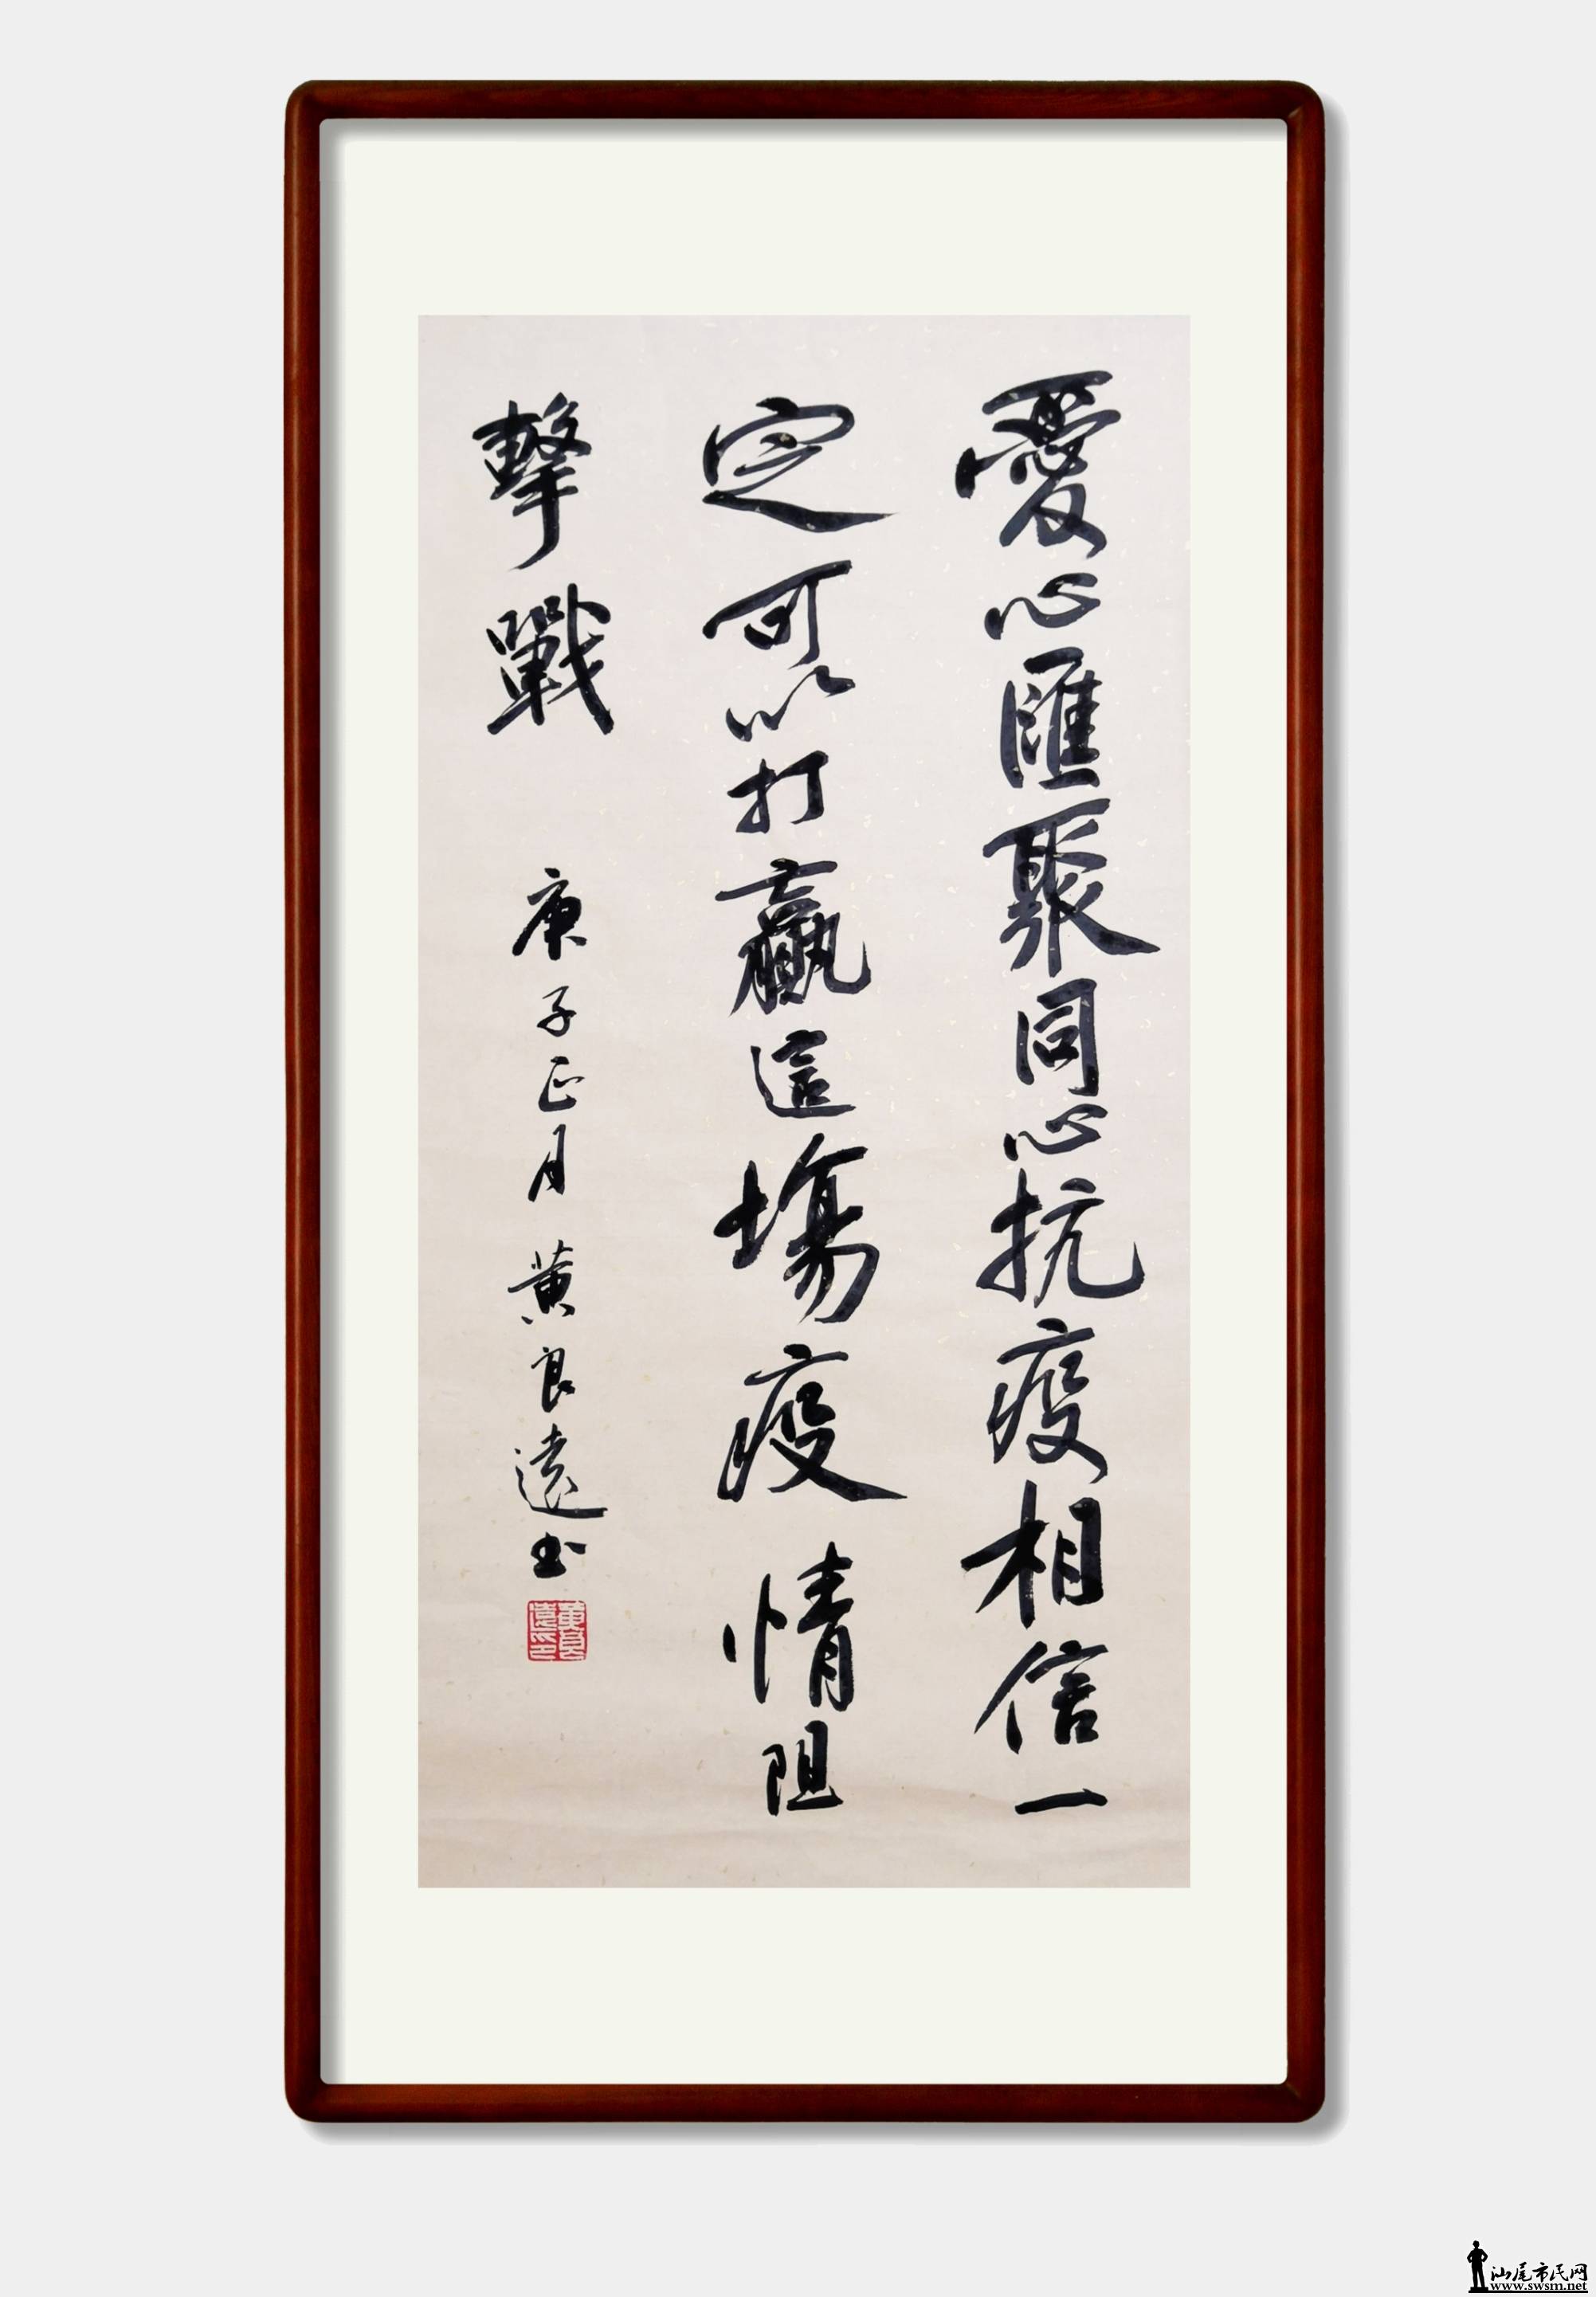 愛心匯聚同心抗疫相信一
定可以打贏這場疫情阻
擊戰
庚子正月 黄良遠书
黄良遠印
汕尾市民网
www.swsm.net